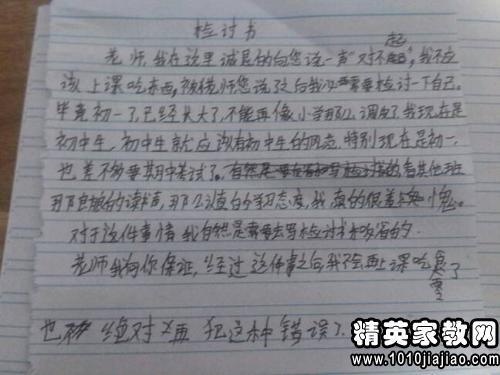 检讨书
老师,我在这里诚恳的向您说一声"对不起",我不应
该上课吃东西,被老师您说了之后我必需要检讨一下自己。
毕竟初一了,已经长大了,不能再像小学那么调皮了我现在是
初中生,初中生就应该有初中生的风范,特别现在是初一,
也差不多要期中考试了。看其他班
那良娘的读书声,那么值的学习态度,我真的很惭愧。
对于这件事情我自然是需要去写检讨书来反省的。
老师我向你保证,经过这件事之后,我不会再上课吃零食了
也绝对不再犯这种错误了。
精英家教网
www.1010jiajiao.com